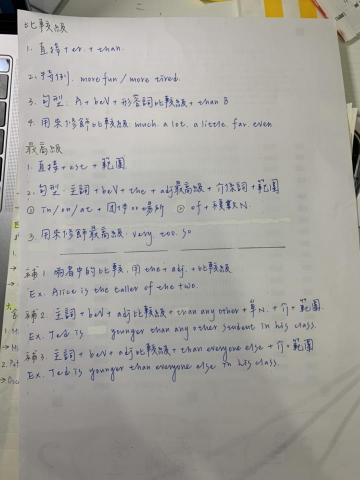 比較級
1. 直接+er.+than.
2. 特例. more fun / more tired.
3. 句型. A + beV + 形容詞比較級 + than B
4. 用來修飾比較級. much. a lot. a little. far. even
最高級
1. 直接+est + 範圍
2. 句型. 主詞 + beV + the + adj最高級 + 介係詞 + 範圍
① In/on/at + 團体 or 場所 ② of + 複數N.
3. 用來修飾最高級. very. too. so
補1. 兩者中的比較, 用the+adj.+比較級
Ex. Alice is the taller of the two.
補2. 主詞 + beV + adj比較級 + than any other + 單N. + 介 + 範圍.
Ex. Ted is younger than any other student in his class.
補3. 主詞 + beV + adj比較級 + than everyone else + 介 + 範圍
Ex. Ted is younger than everyone else in his class.